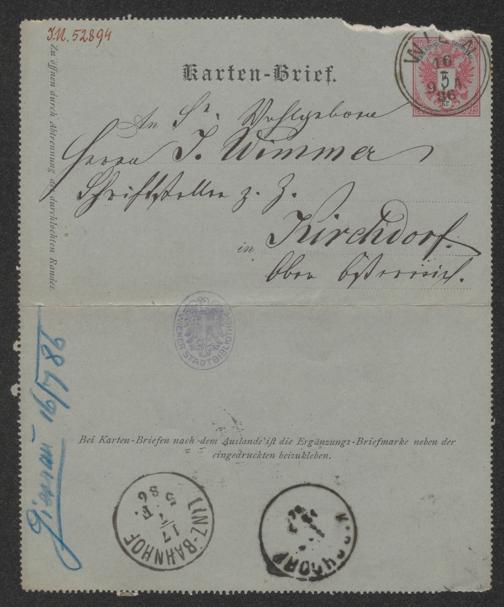 I.N. 52894
Zu öffnen durch Abtrennung des durchlochten Randes.
Karten-Brief.
WIEN
16
7
86
5
An Sr. Wohlgeboren
Herrn J. Wimmer
Schriftsteller z. Z.
in Kirchdorf.
Ober Österreich.
WIENER STADTBIBLIOTHEK
16/7 86
Bei Karten-Briefen nach dem Auslande ist die Ergänzungs-Briefmarke neben der
eingedruckten beizukleben.
LINZ-BAHNHOF
17
7
F.
5 86